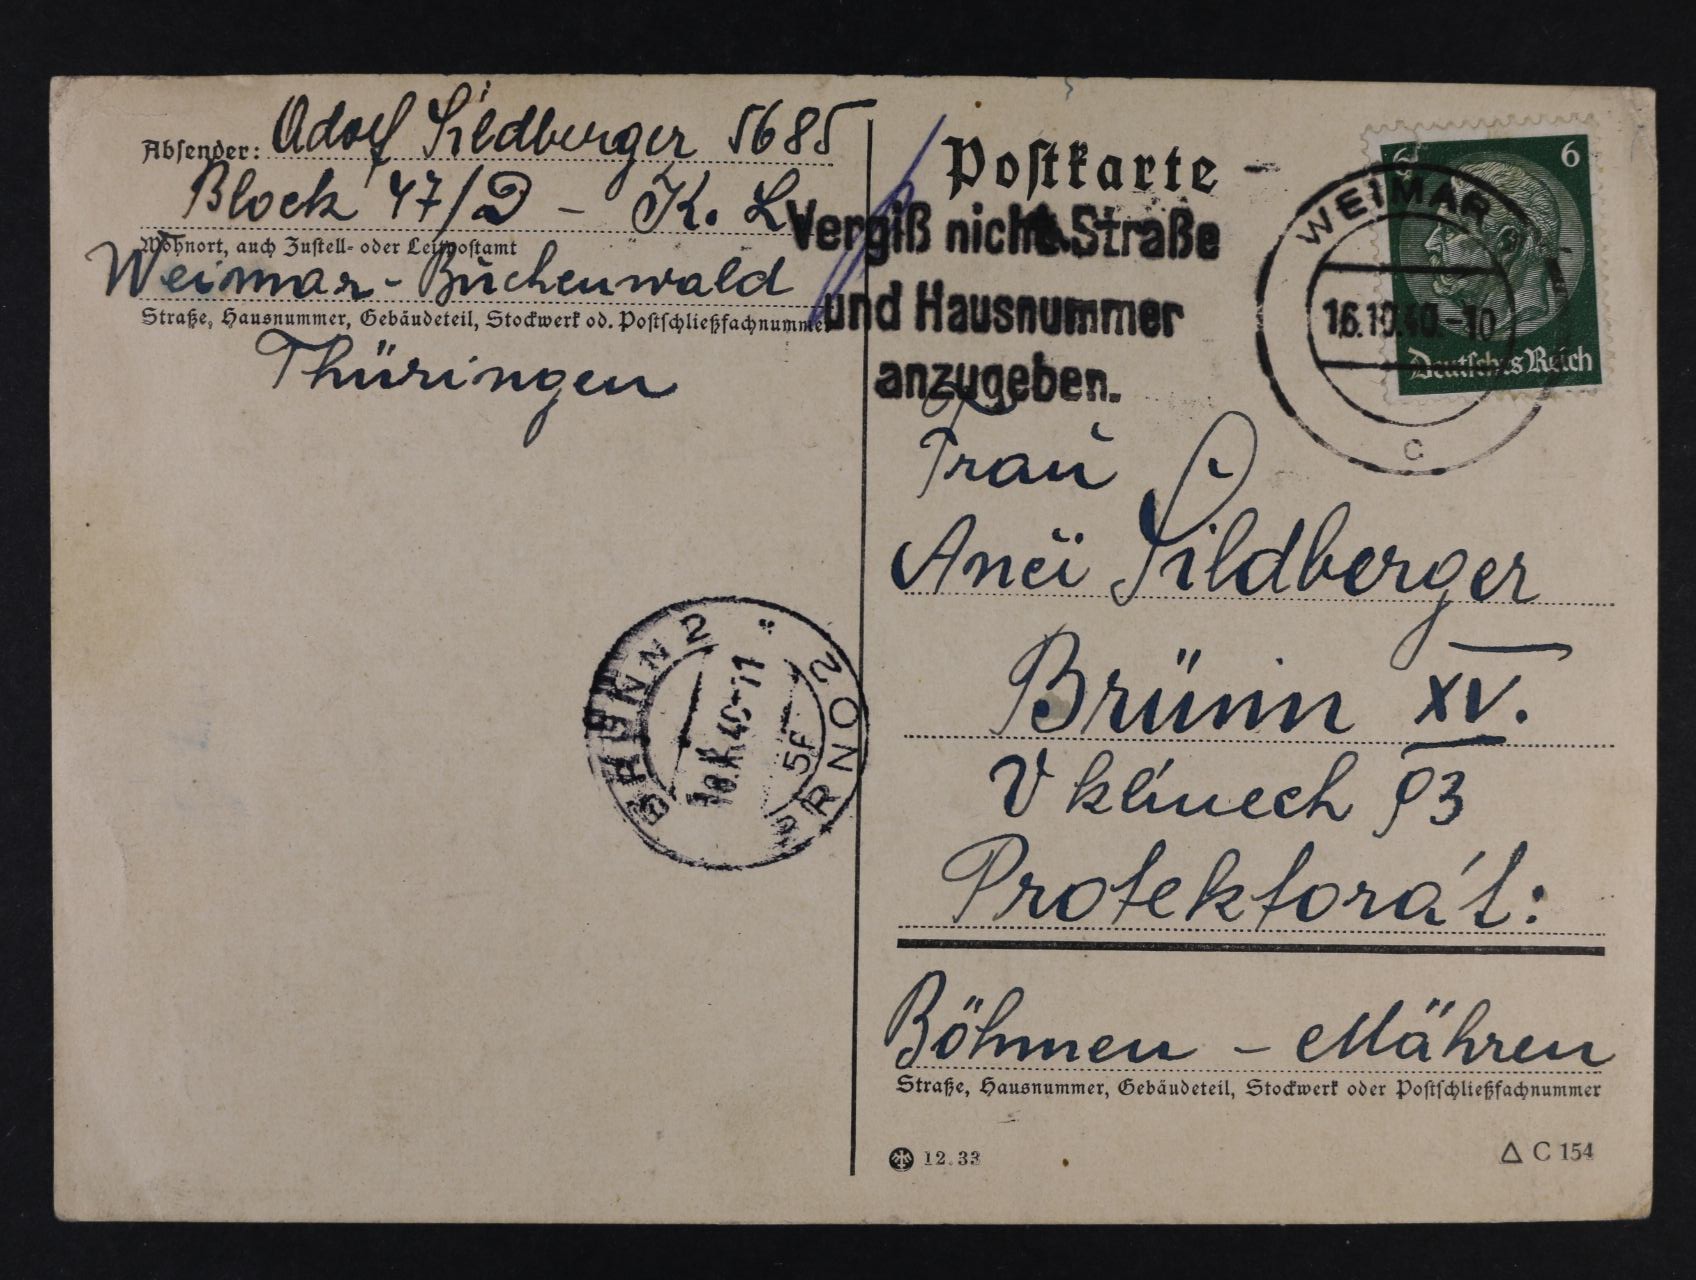 Absender: Adolf Sildberger 5685
Block 47/D - K. L.
Wohnort, auch Zustell- oder Leitpostamt
Weimar - Buchenwald
Straße, Hausnummer, Gebäudeteil, Stockwerk od. Postschließfachnummer
Thüringen
Postkarte
Vergiß nicht Straße
und Hausnummer
anzugeben.
WEIMAR
16.10.40.-10
c
6 6
Deutsches Reich
Frau
Anči Sildberger
Brünn XV.
V klínech 93
Protektorát:
Böhmen - Mähren
Straße, Hausnummer, Gebäudeteil, Stockwerk oder Postschließfachnummer
BRÜNN 2 * BRNO 2
40-11
5F
12.33
△ C 154